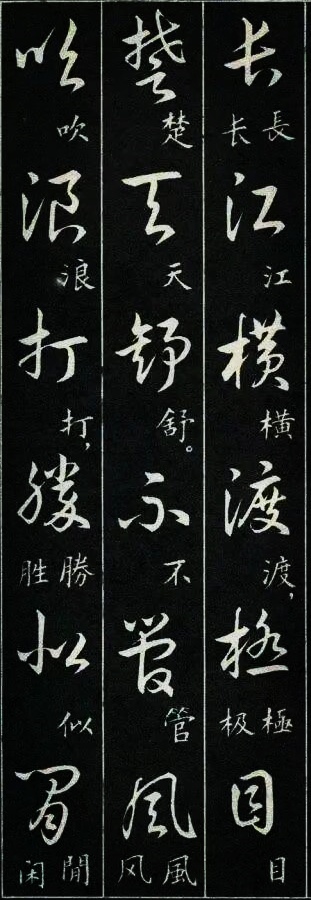 长江横渡极目
长長江横渡，极極目
楚天舒不管风
楚天舒。不管风風
吹浪打胜似闲
吹浪打，胜勝似闲閒